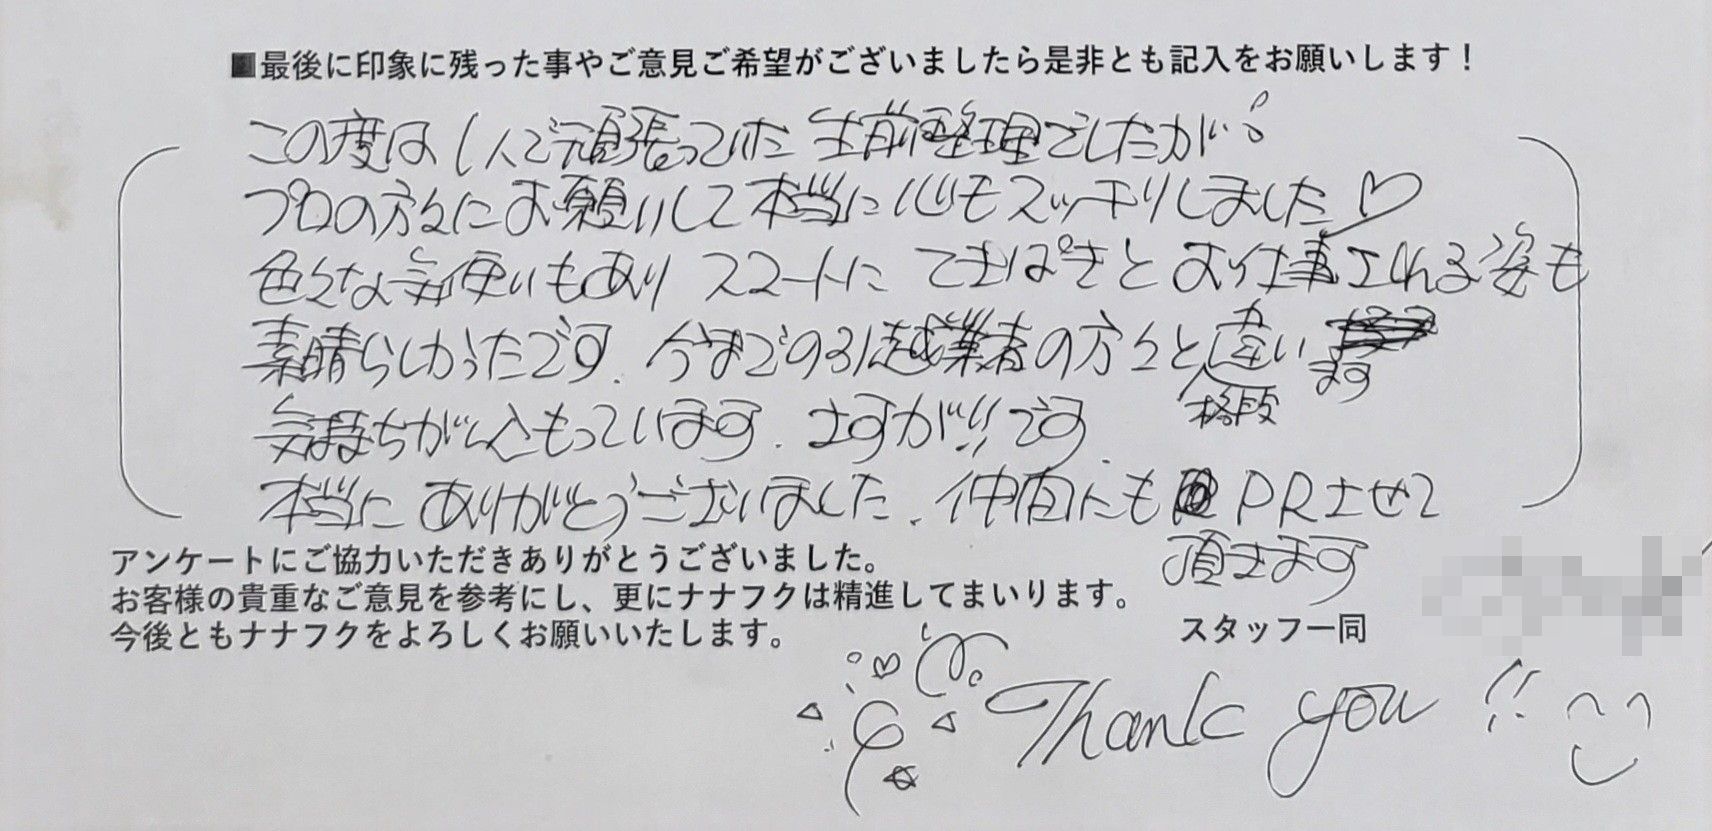 ■最後に印象に残った事やご意見ご希望がございましたら是非とも記入をお願いします！
この度は1人で頑張っていた 生前整理でしたが
プロの方々にお願いして本当に心もスッキリしました♡
色々な気使いもあり スマートに てきぱきと お仕事される姿も
素晴らしかったです. 今までの引越業者の方々と格段違います
気持ちが入ともっています. さすが!!です.
本当に ありがとうございました. 仲間にも PRさせて
頂きます
アンケートにご協力いただきありがとうございました。
お客様の貴重なご意見を参考にし、更にナナフクは精進してまいります。
今後ともナナフクをよろしくお願いいたします。
スタッフ一同
Thank you !!